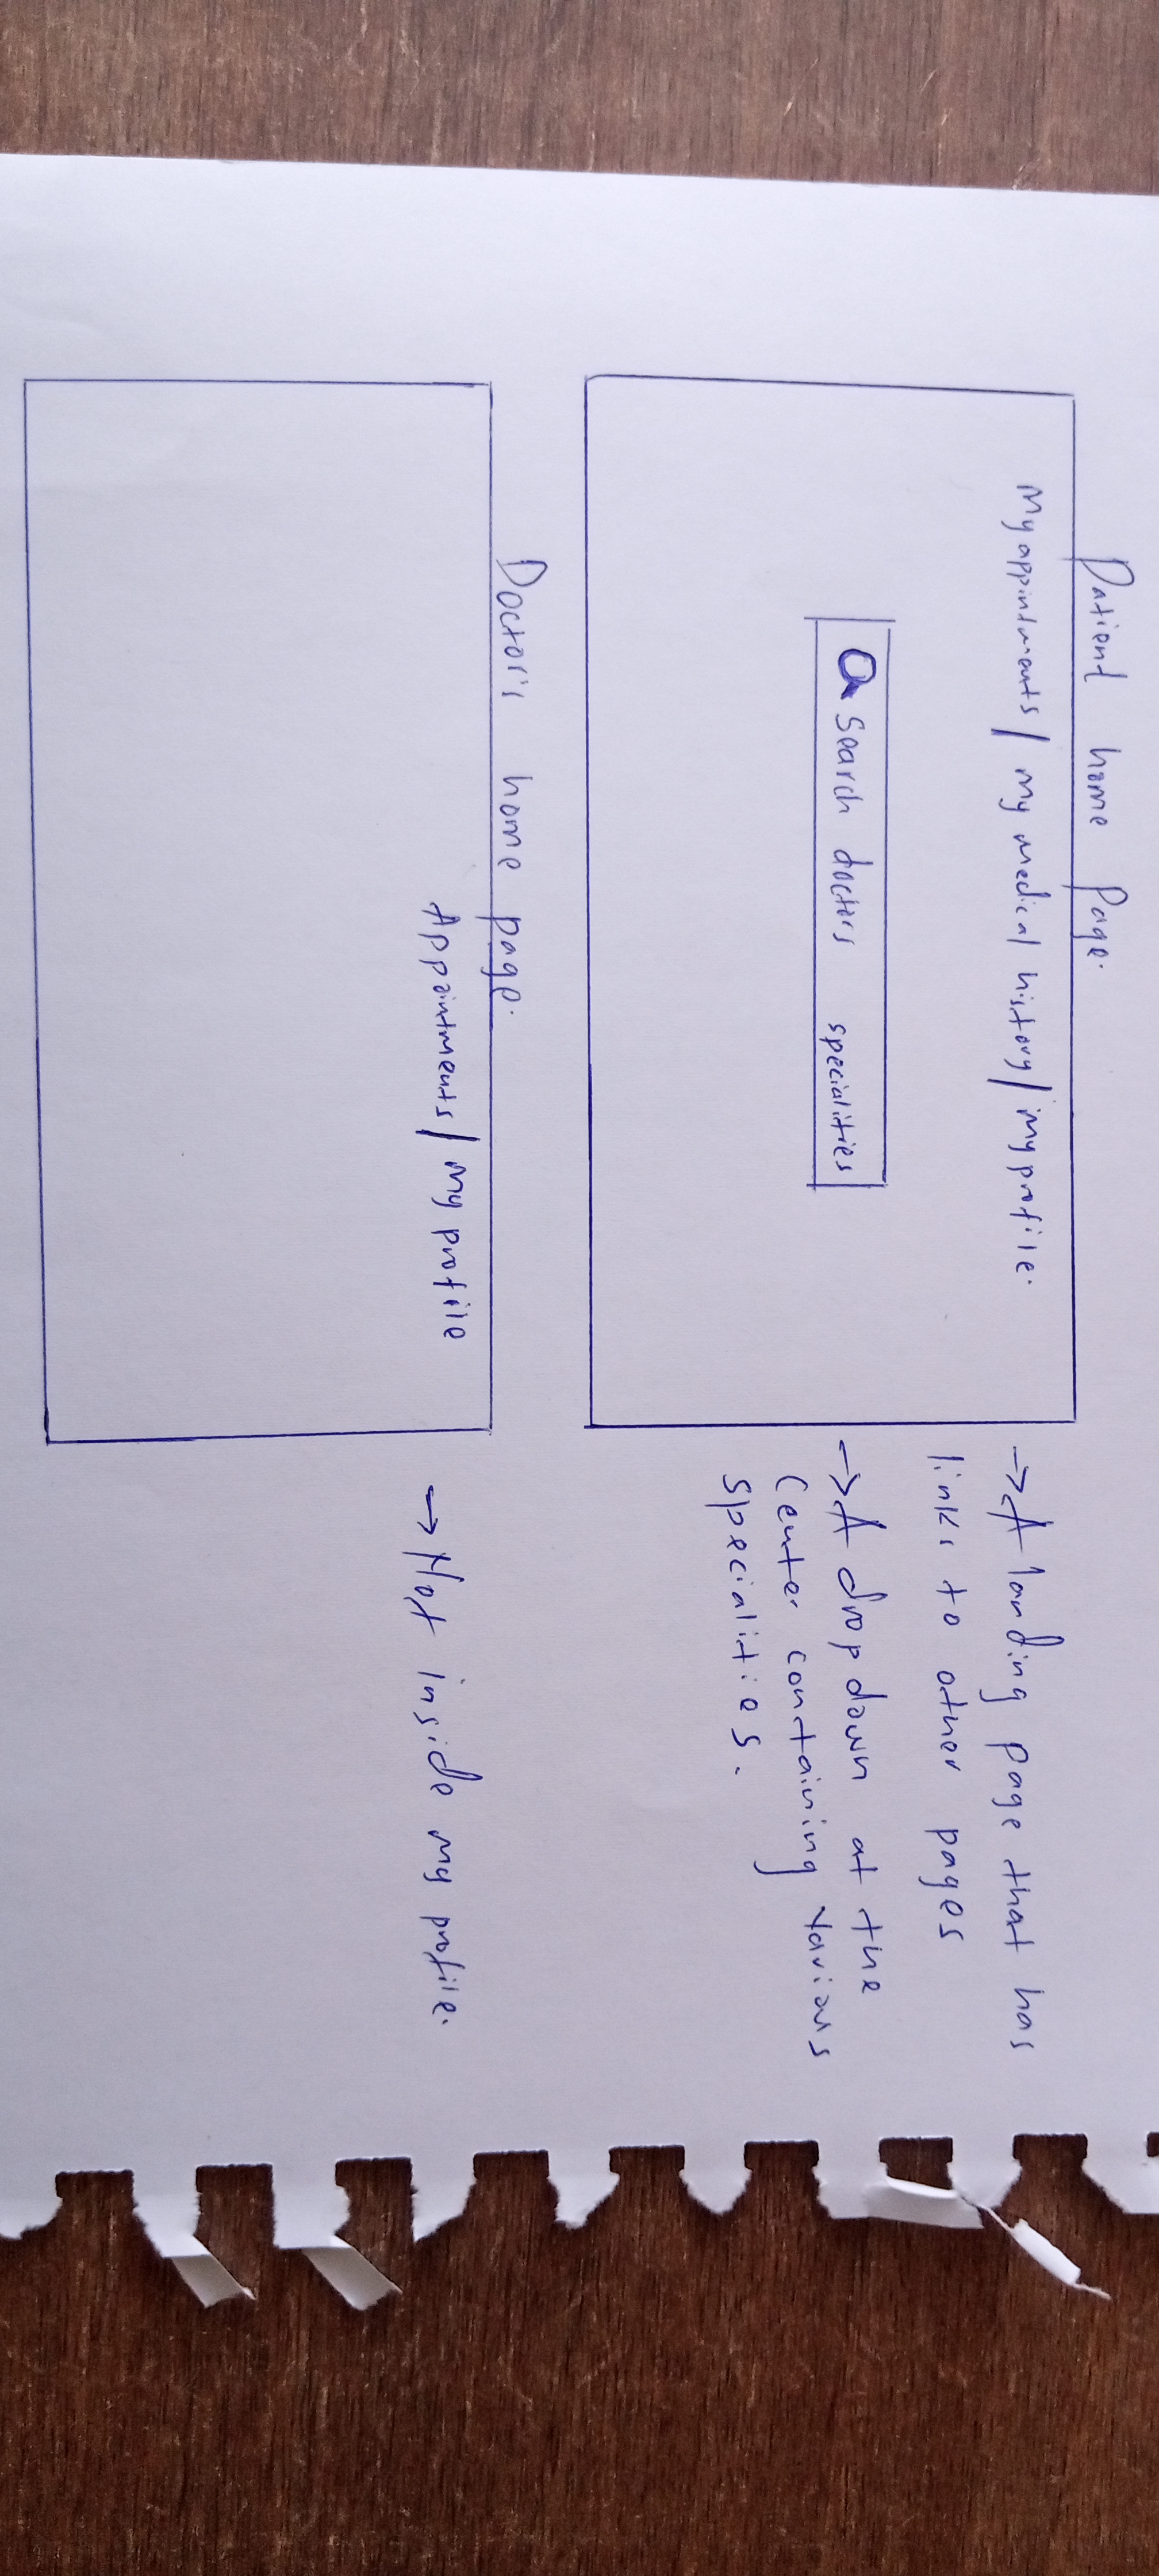 Patient home Page.
My appointments / My medical history / My profile.
Search doctors specialities
→ A landing page that has
links to other pages
→ A drop down at the
Center containing various
specialities.
Doctor's home page.
Appointments / My profile
→ Not inside my profile.